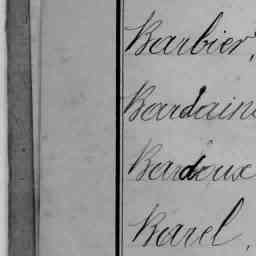 Barbier,
Bardain
Bardoux
Barel,